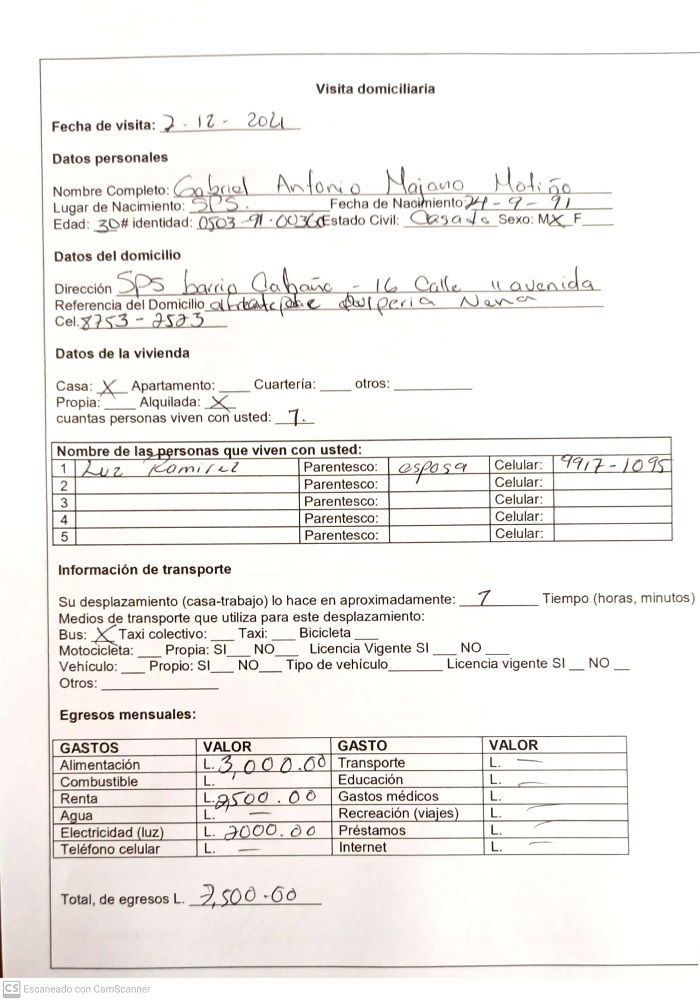 Visita domiciliaria
Fecha de visita: 7-12-2021
Datos personales
Nombre Completo: Gabriel Antonio Majano Motiño
Lugar de Nacimiento: SPS. Fecha de Nacimiento 24-9-91
Edad: 30 # identidad: 0503-91-0036 Estado Civil: Casado Sexo: M X F
Datos del domicilio
Dirección SPS barrio Cabañas - 16 Calle 11 avenida
Referencia del Domicilio pulperia Nena
Cel. 8753-2523
Datos de la vivienda
Casa: X Apartamento: ____ Cuartería: ____ otros: ____
Propia: ____ Alquilada: X
cuantas personas viven con usted: 1.
Nombre de las personas que viven con usted:
1 Luz Ramirez Parentesco: esposa Celular: 9917-1095
2 Parentesco: Celular:
3 Parentesco: Celular:
4 Parentesco: Celular:
5 Parentesco: Celular:
Información de transporte
Su desplazamiento (casa-trabajo) lo hace en aproximadamente: 1 Tiempo (horas, minutos)
Medios de transporte que utiliza para este desplazamiento:
Bus: X Taxi colectivo: ___ Taxi: ___ Bicicleta ___
Motocicleta: ___ Propia: SI___ NO___ Licencia Vigente SI ___ NO ___
Vehículo: ___ Propio: SI___ NO___ Tipo de vehículo_______ Licencia vigente SI __ NO __
Otros: _______________
Egresos mensuales:
GASTOS VALOR GASTO VALOR
Alimentación L. 3,000.00 Transporte L. —
Combustible L. — Educación L. —
Renta L. 2500.00 Gastos médicos L. —
Agua L. — Recreación (viajes) L. —
Electricidad (luz) L. 2000.00 Préstamos L. —
Teléfono celular L. — Internet L. —
Total, de egresos L. 7,500.00
CS Escaneado con CamScanner